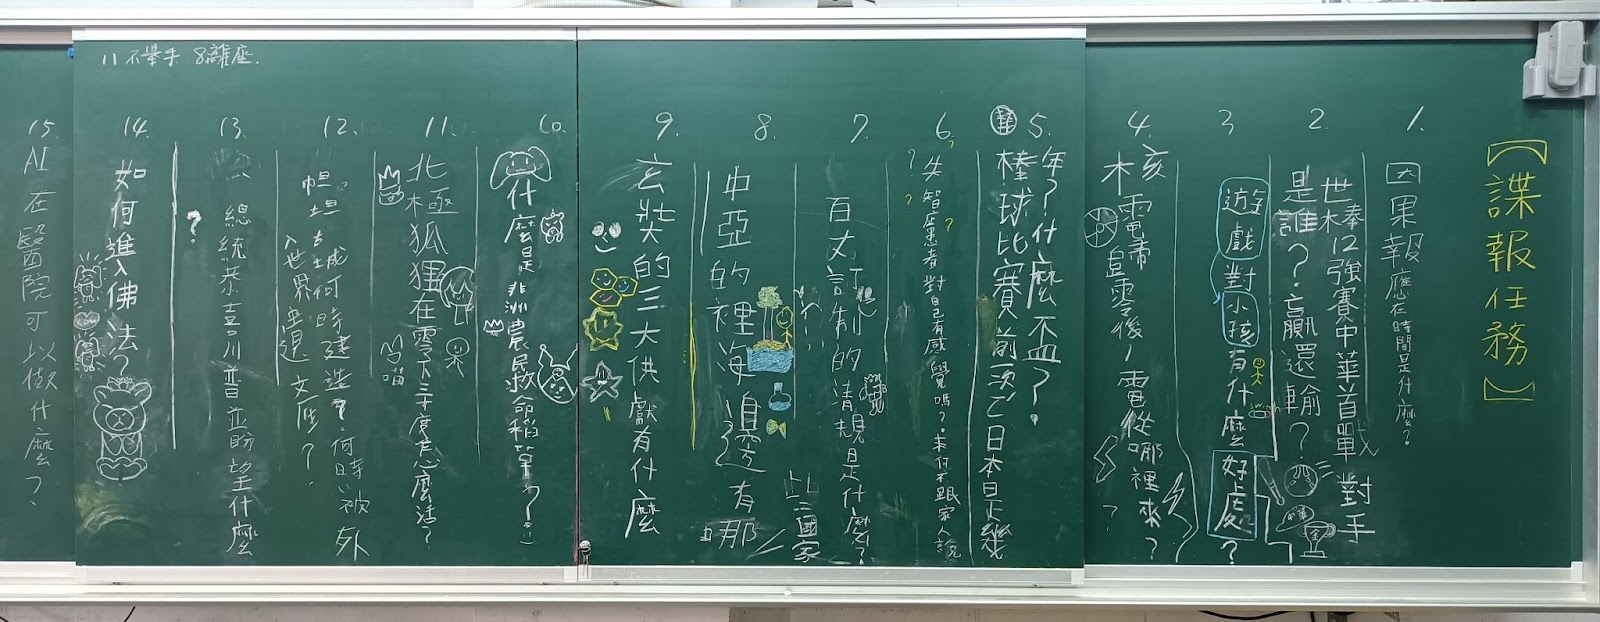 【諜報任務】
1.
因果報應在時間是什麼?
2.
世棒12強賽中華首戰對手
是誰?贏還輸?
swish
3
遊戲對小孩有什麼好處?
4.
核電歸零後,電從哪裡來?
5.
棒球比賽前次日本是幾
年?什麼不血?
6.
失智症患者對自己有感覺嗎?為何不跟家人說
7.
百丈訂制的清規是什麼?
8.
中亞的裡海邊邊有哪
些國家
9.
玄奘的三大供獻有什麼
10.
什麼是非洲農民救命稻草?
11.
北極狐狸在零下三十度怎麼活?
喵
12.
坦古城何時建造?何時被外
入世界遺文產?
13.
總統恭喜川普並盼望什麼
?
14.
如何進入佛法?
15.
AI在醫院可以做什麼?
11不舉手 8離座.